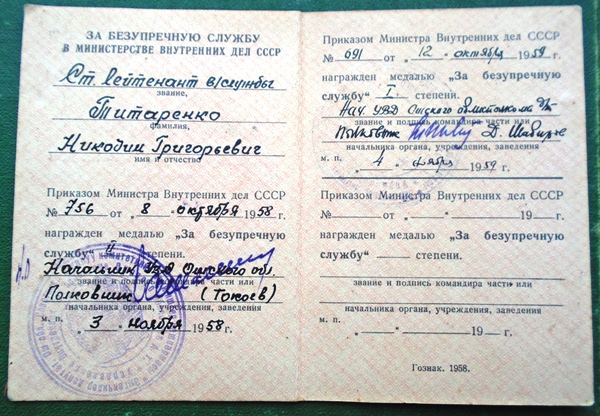 ЗА БЕЗУПРЕЧНУЮ СЛУЖБУ
В МИНИСТЕРСТВЕ ВНУТРЕННИХ ДЕЛ СССР
Ст. Лейтенант в/службы
звание,
Титаренко
фамилия,
Никодим Григорьевич
имя и отчество
Приказом Министра Внутренних дел СССР
№ 756 от 8 октября 1958 г.
награжден медалью „За безупречную
службу" II степени.
Начальник УВД Омского обл.
звание и подпись командира части или
Полковник (Токоев)
начальника органа, учреждения, заведения
м. п. 3 ноября 1958 г.
Приказом Министра Внутренних дел СССР
№ 691 от 12 октября 1959 г.
награжден медалью „За безупречную
службу" I степени.
Нач. УВД Омского облисполкома
звание и подпись командира части или
Д.
начальника органа, учреждения, заведения
м. п. 4 1959 г.
Приказом Министра Внутренних дел СССР
№ — от — " — 19 — г.
награжден медалью „За безупречную
службу" — степени.
звание и подпись командира части или
начальника органа, учреждения, заведения
м. п. — " — 19 — г.
Гознак. 1958.